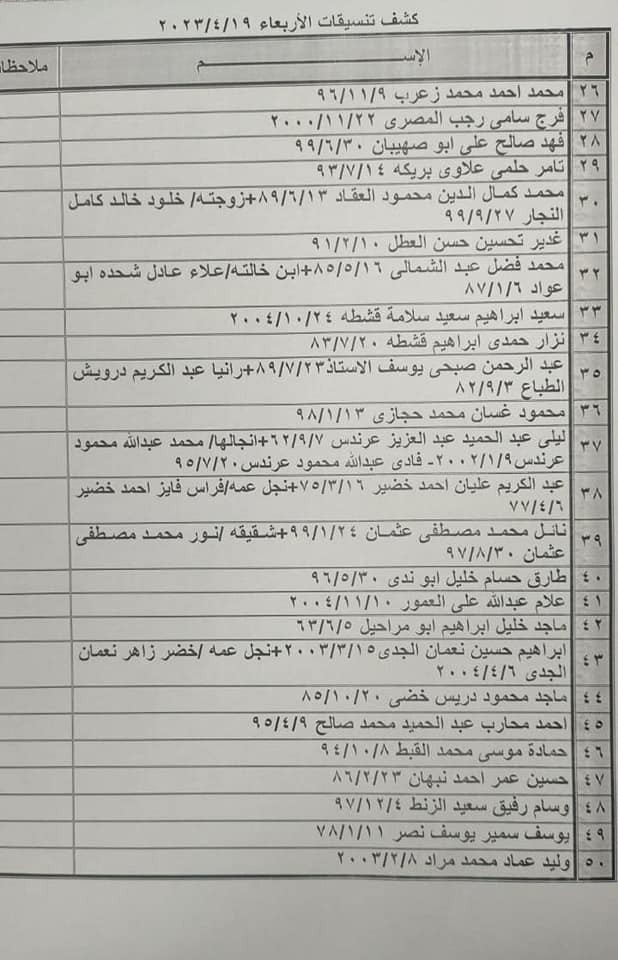 كشف تنسيقات الأربعاء ٢٠٢٣/٤/١٩
م الإســـــــــم ملاحظا
٢٦ محمد احمد محمد زعرب ٩٦/١١/٩
٢٧ فرج سامى رجب المصرى ٢٠٠٠/١١/٢٢
٢٨ فهد صالح على ابو صهيبان ٩٩/٦/٣٠
٢٩ تامر حلمى علاوى بريكه ٩٣/٧/١٤
٣٠ محمد كمال الدين محمود العقاد ٨٩/٦/١٣+زوجته/ خلود خالد كامل
النجار ٩٩/٩/٢٧
٣١ غدير تحسين حسن العطل ٩١/٢/١٠
٣٢ محمد فضل عبد الشمالى ٨٥/٥/١٦+ابن خالته/علاء عادل شحده ابو
عواد ٨٧/١/٦
٣٣ سعيد ابراهيم سعيد سلامة قشطه ٢٠٠٤/١٠/٢٤
٣٤ نزار حمدى ابراهيم قشطه ٨٣/٧/٢٠
٣٥ عبد الرحمن صبحى يوسف الاستاذ٨٩/٧/٢٣+رانيا عبد الكريم درويش
الطباع ٨٢/٩/٣
٣٦ محمود غسان محمد حجازى ٩٨/١/١٣
٣٧ ليلى عبد الحميد عبد العزيز عرندس ٦٢/٩/٧+انجالها/ محمد عبدالله محمود
عرندس٢٠٠٢/١/٩- فادى عبدالله محمود عرندس٩٥/٧/٢٠
٣٨ عبد الكريم عليان احمد خضير ٧٥/٣/١٦+نجل عمه/فراس فايز احمد خضير
٧٧/٤/٦
٣٩ نائل محمد مصطفى عثمان ٩٩/١/٢٤+شقيقه /نور محمد مصطفى
عثمان ٩٧/٨/٣٠
٤٠ طارق حسام خليل ابو ندى ٩٦/٥/٣٠
٤١ علام عبدالله على العمور ٢٠٠٤/١١/١٠
٤٢ ماجد خليل ابراهيم ابو مراحيل ٦٣/٦/٥
٤٣ ابراهيم حسين نعمان الجدى٢٠٠٣/٣/١٥+نجل عمه /خضر زاهر نعمان
الجدى ٢٠٠٤/٤/٦
٤٤ ماجد محمود دريس خضى ٨٥/١٠/٢٠
٤٥ احمد محارب عبد الحميد محمد صالح ٩٥/٤/٩
٤٦ حمادة موسى محمد القبط ٩٤/١٠/٨
٤٧ حسين عمر احمد نبهان ٨٦/٢/٢٣
٤٨ وسام رفيق سعيد الزنط ٩٧/١٢/٤
٤٩ يوسف سمير يوسف نصر ٧٨/١/١١
٥٠ وليد عماد محمد مراد ٢٠٠٣/٢/٨